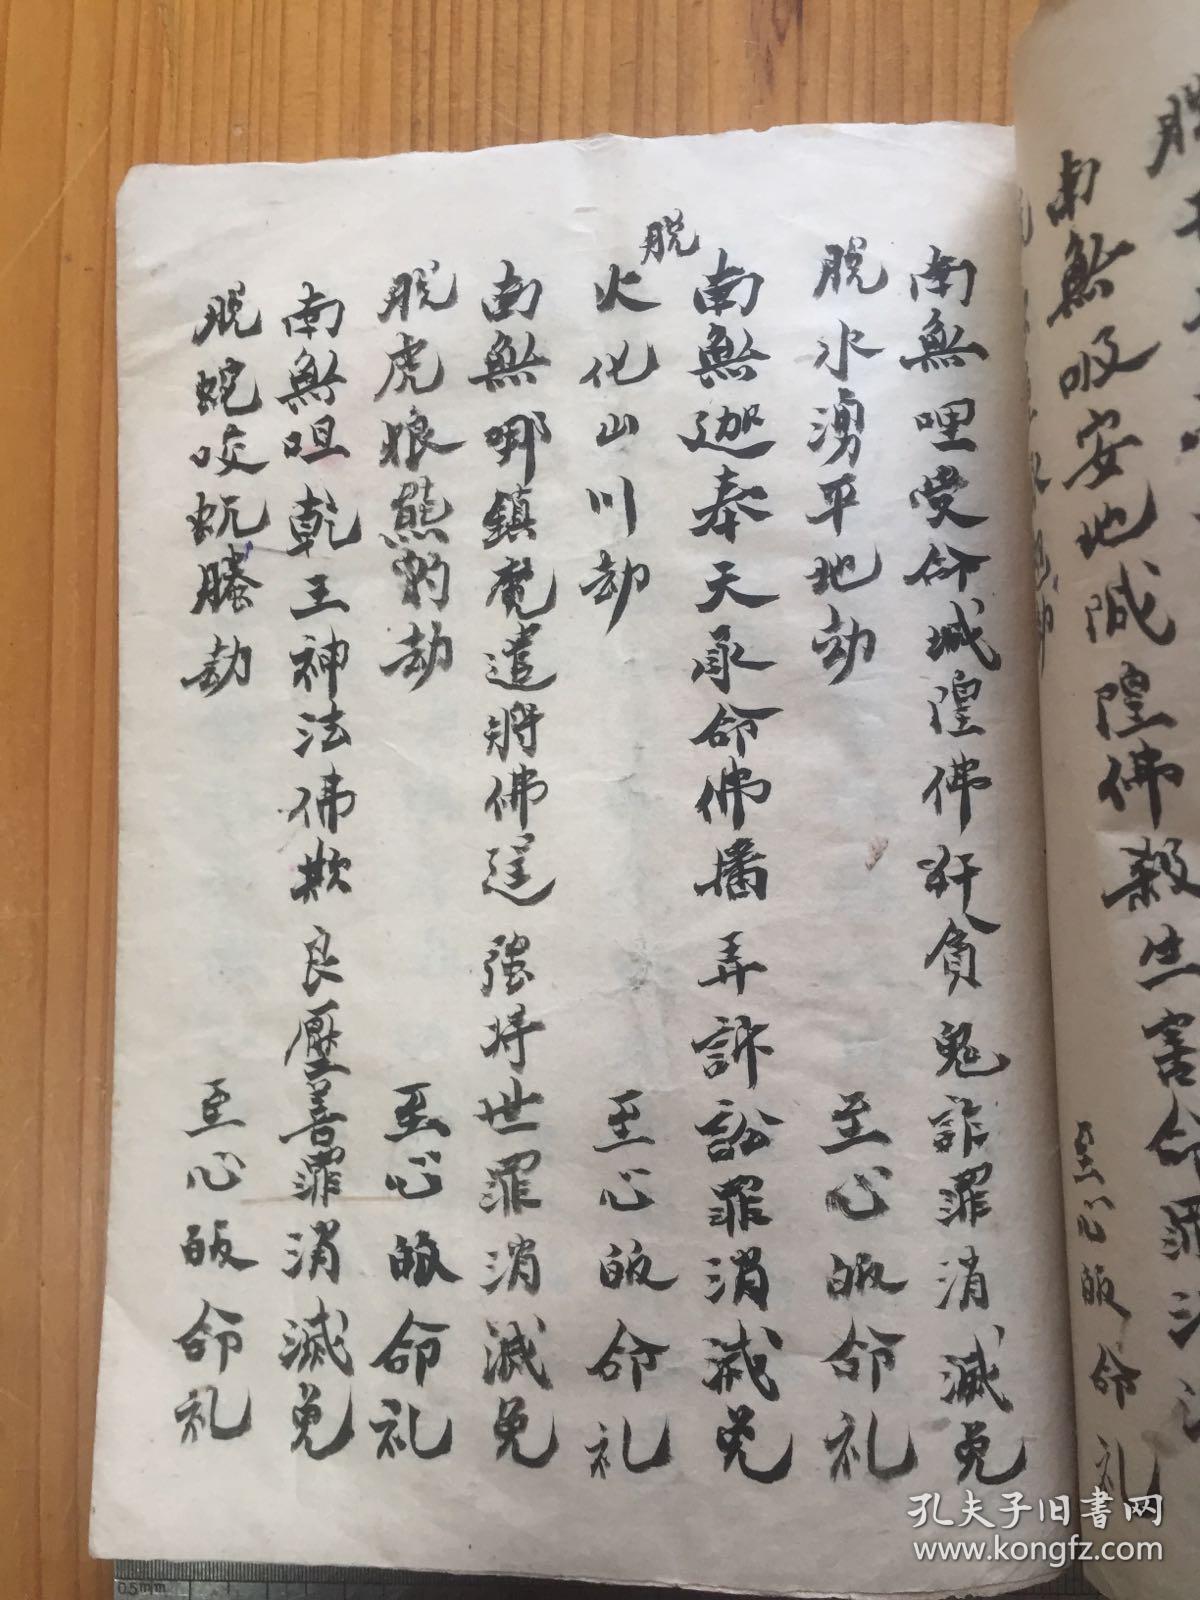 南無吸安地城隍佛殺生害命罪消
至心皈命礼
南無哩受命城隍佛奸貪鬼詐罪消滅免
脱水湧平地劫 至心皈命礼
南無迦奉天承命佛播弄訴訟罪消滅免
脱火化山川劫 至心皈命礼
南無哪鎮魔遣將佛逞强持世罪消滅免
脱虎狼熊豹劫 至心皈命礼
南無咀乾王神法佛欺良壓善罪消滅免
脱蛇咬蚖螣劫 至心皈命礼
孔夫子旧书网
www.kongfz.com
0.5mm